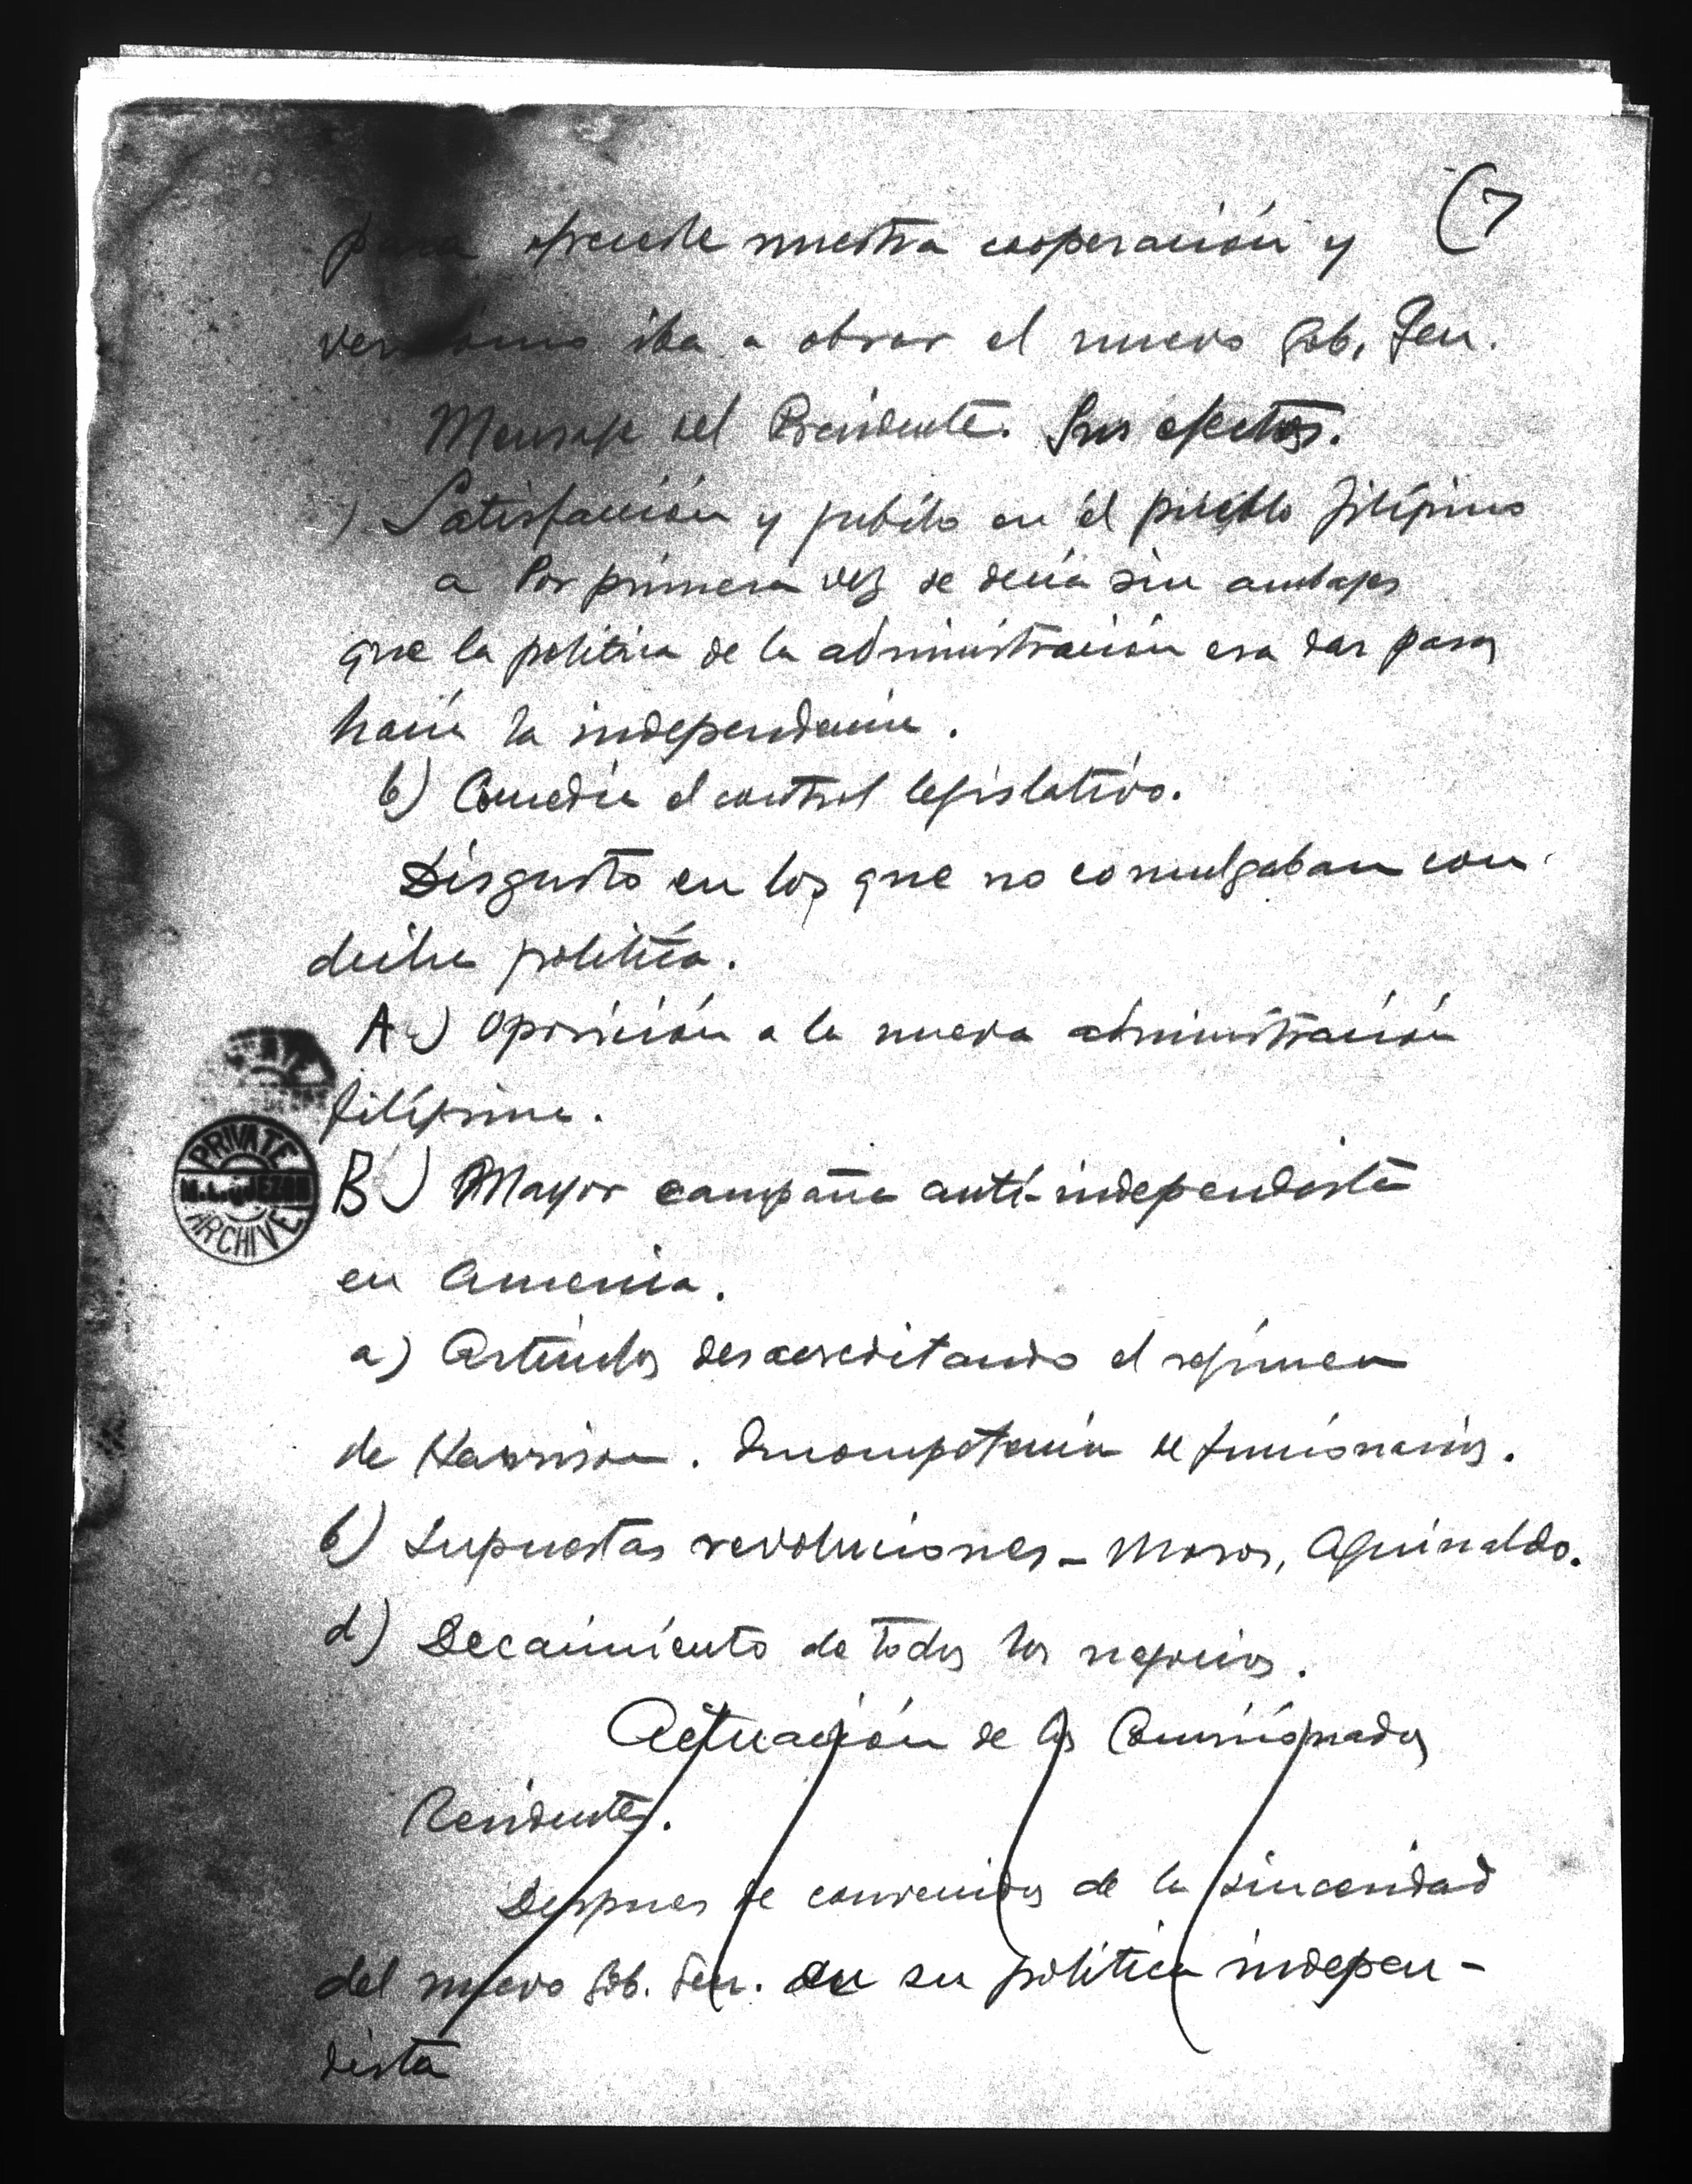 (7
para ofrecerle nuestra cooperación y
ver cómo iba a obrar el nuevo Gob. Gen.
Mensaje del Presidente. Sus efectos.
) Satisfacción y jubilo en el pueblo filipino
a Por primera vez se decía sin ambajes
que la politica de la administración era dar pasos
hacia la independencia.
b) Concedía el control legislativo.
Disgusto en los que no comulgaban con
dicha política.
A.) Oposición a la nueva administración
filipina.
B.) Mayor campaña anti-independista
en America.
a) Articulos desacreditando el régimen
de Harrison. Incompetencia de funcionarios.
b) Supuestas revoluciones - Moros, Aguinaldo.
d) Decaimiento de todos los negocios.
Actuación de los Comisionados
Residentes.
Despues de convenidos de la sinceridad
del nuevo Gob. Gen. en su politica indepen-
dista
PRIVATE
M.L.QUEZON
ARCHIVE